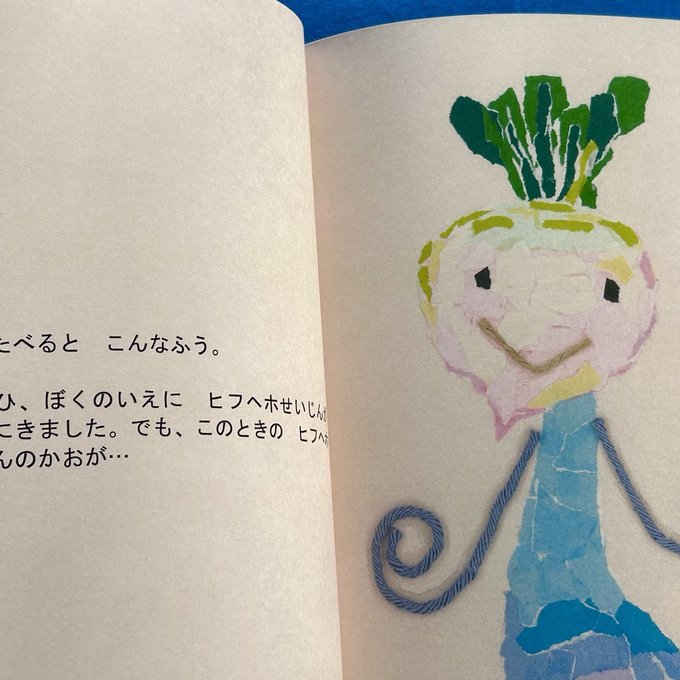 たべると　こんなふう。
ひ、ぼくのいえに　ヒフヘホせいじんが
にきました。でも、このときの　ヒフヘホ
んのかおが…